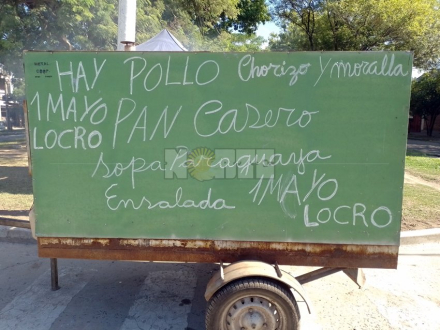 HAY POLLO Chorizo Y moralla
1 MAYO PAN Casero
LOCRO
sopa Paraguaya
Ensalada 1 MAYO
LOCRO